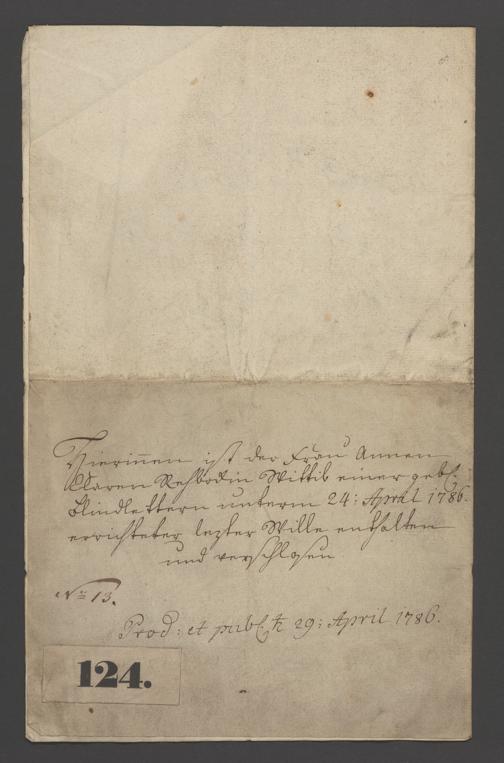 Hierinnen ist der Frau Annen
Claren Rehbodin Wittib einer geb.
Blindlettern unterm 24: April 1786.
errichteter lezter Wille enthalten
und verschlosen
No 13.
Prod: et publ. 29: April 1786.
124.